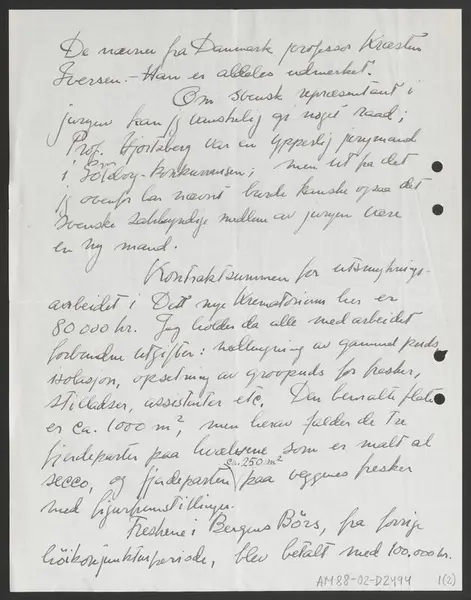 De nævner fra Danmark professor Kræsten
Iversen. - Han er aldeles udmerket.
Om svensk representant i
juryen kan jeg vanskelig gi noget raad;
Prof. Hjortzberg var en ypperlig jurymand
i Sölvbg-konkurransen; men ut fra det
jeg ovenfor har nævnt burde kanske ogsaa det
svenske sakkyndige medlem av juryen være
en ny mand.
Kontraktsummen for utsmyknings-
arbeidet i Det nye Krematorium her er
80 000 kr. Jeg holder da alle med arbeidet
forbundne utgifter: nedhugning av gammel puds,
isolasjon, opsetning av grovpuds for fresker,
stilladser, assistenter etc. Den bemalte flate
er ca. 1000 m², men herav falder de tre
fjerdeparter paa hvælvene som er malt al
secco, og fjerdeparten paa veggenes fresker
ca. 250 m²
med figurfremstillinger.
Freskene i Bergens Börs, fra forrige
höikonjunkturperiode, blev betalt med 100,000 kr.
AM88-02-D2494 1(2)